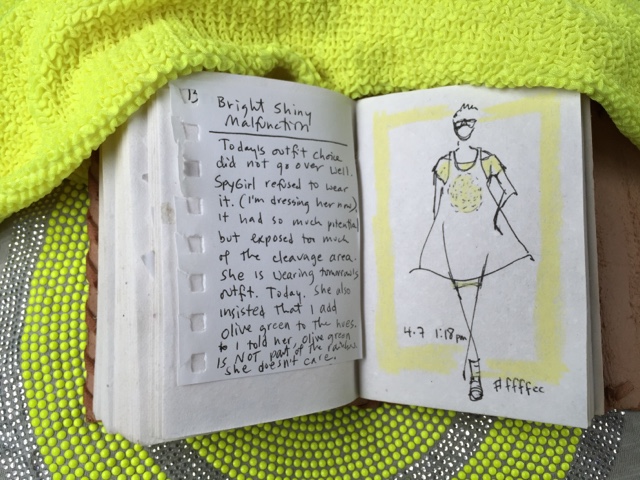 13
Bright Shiny
Malfunction
Today's outfit choice
did not go over well.
SpyGirl refused to wear
it. (I'm dressing her now)
It had so much potential
but exposed too much
of the cleavage area.
She is wearing tomorrows
outfit. Today. She also
insisted that I add
Olive green to the hues.
I told her, Olive green
IS NOT part of the rainbow.
She doesn't care.
4.7 1:18pm
#ffffcc